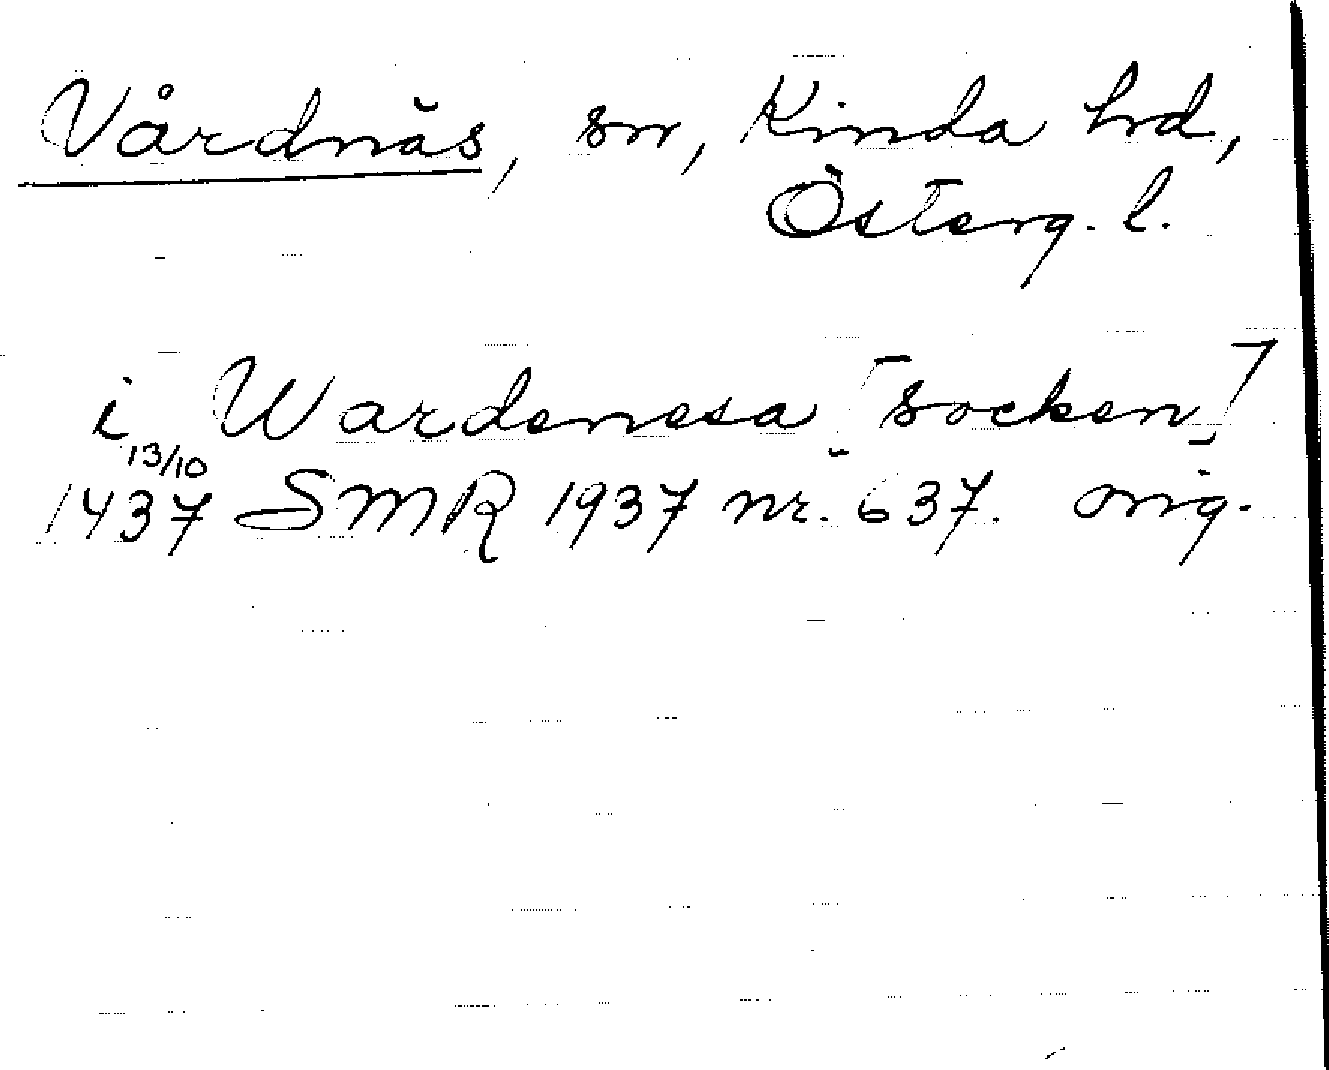 Vårdnäs, sn, Kinda hrd,
Österg. l.
i Wardenesa [socken]
13/10
1437 SMR 1937 nr. 637. orig.